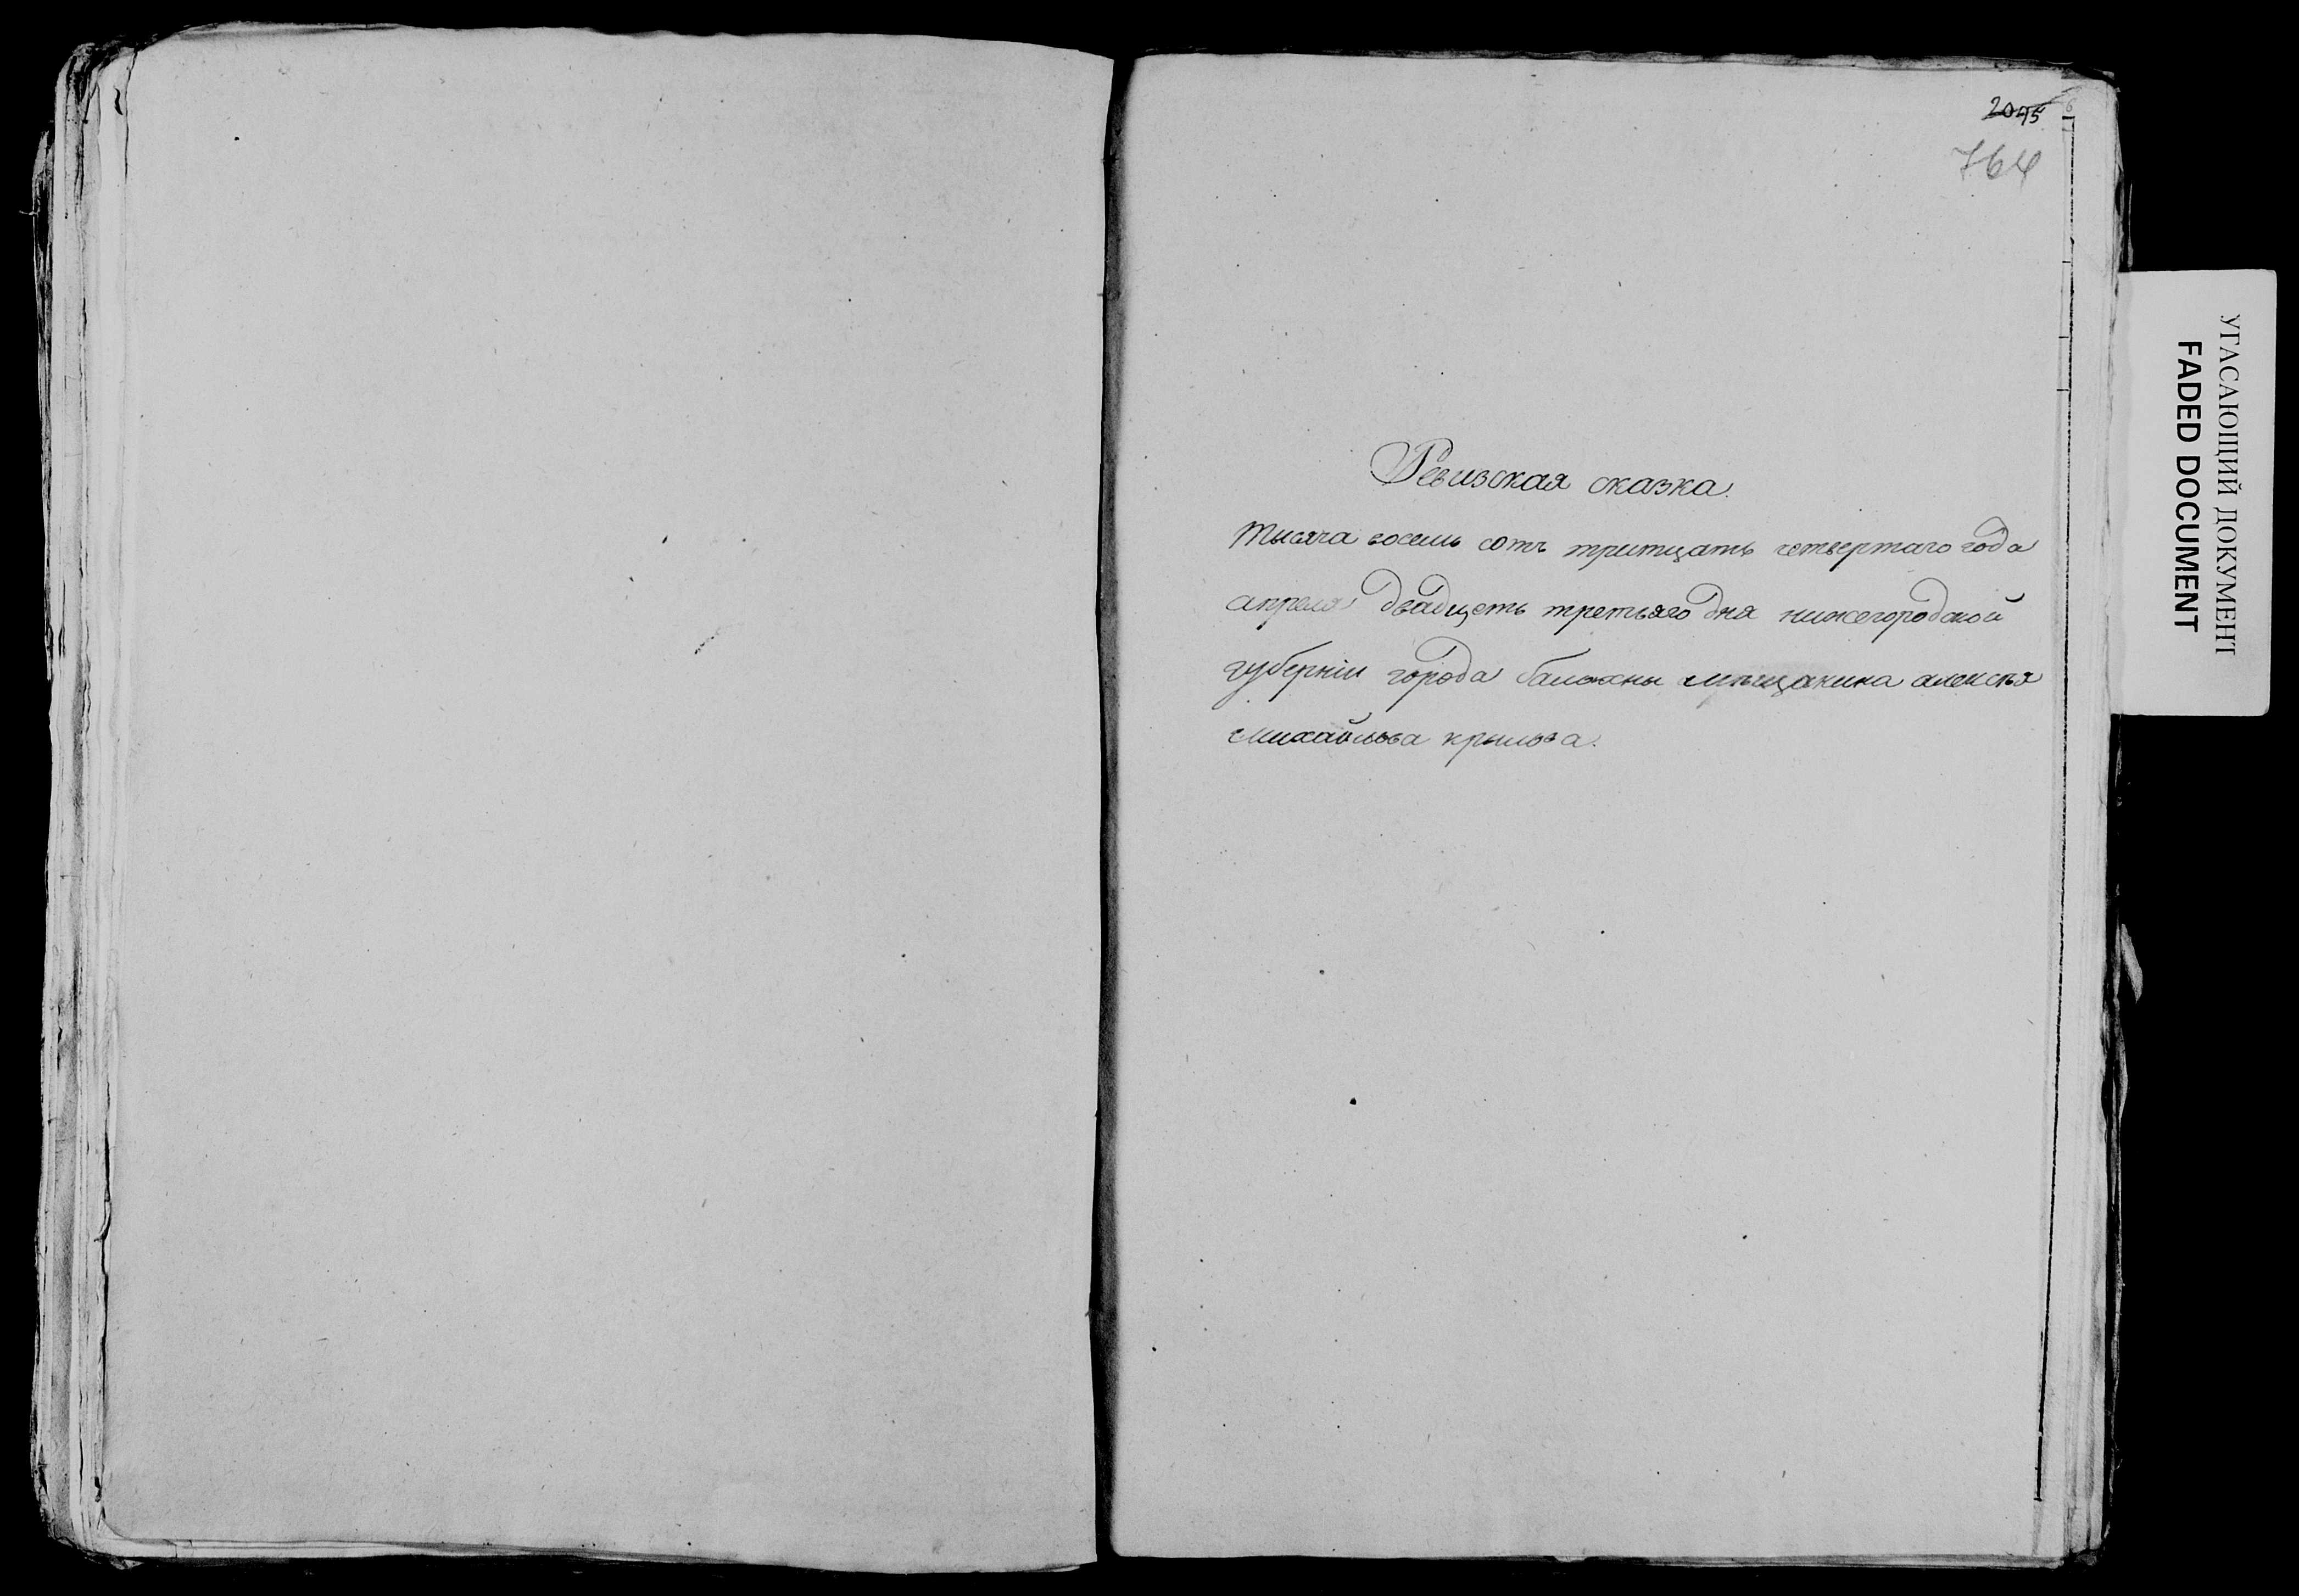 2045
764
Ревизская сказка.
тысяча восемь сотъ тритцать четвертаго года
апреля двадцеть третьяго дня нижегородской
губерніи города балахны мещанина алексѣя
михайлова крылова.
УГАСАЮЩИЙ ДОКУМЕНТ
FADED DOCUMENT